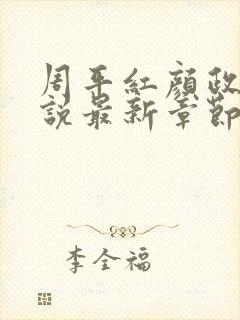 周平紅顏政
說最新章節
李全福